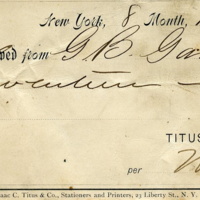 New York, 8 Month, 1
ved from G. B. Ga
TITUS
per
aac C. Titus & Co., Stationers and Printers, 23 Liberty St., N. Y.